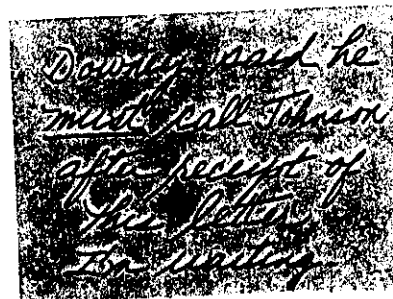 Downey said he
must call Johnson
after receipt of
this letter
I'm waiting.